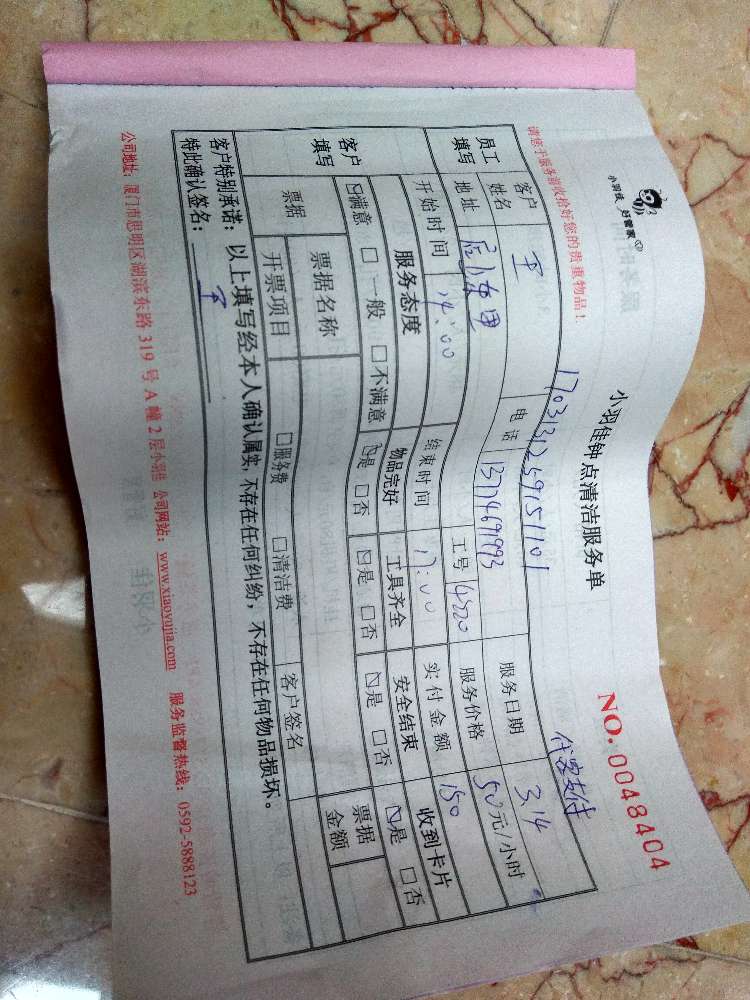 小羽佳 好管家
小羽佳钟点清洁服务单
NO. 0048404
请您于服务前收拾好您的贵重物品！
员工填写
客户姓名 王 电话 13774691993 服务日期 3.14
地址 工号 4520 服务价格 50元/小时
开始时间 14:00 结束时间 17:00 实付金额 150
客户填写
服务态度 物品完好 工具齐全 安全结束 收到卡片
☑满意 □一般 □不满意 ☑是 □否 ☑是 □否 ☑是 □否 ☑是 □否
票据 票据名称 票据金额
开票项目 □服务费 □清洁费 客户签名
客户特别承诺：以上填写经本人确认属实，不存在任何纠纷，不存在任何物品损坏。
特此确认签名：
公司地址：厦门市思明区湖滨东路319号A幢2层小羽佳 公司网站：www.xiaoyujia.com 服务监督热线：0592-5888123